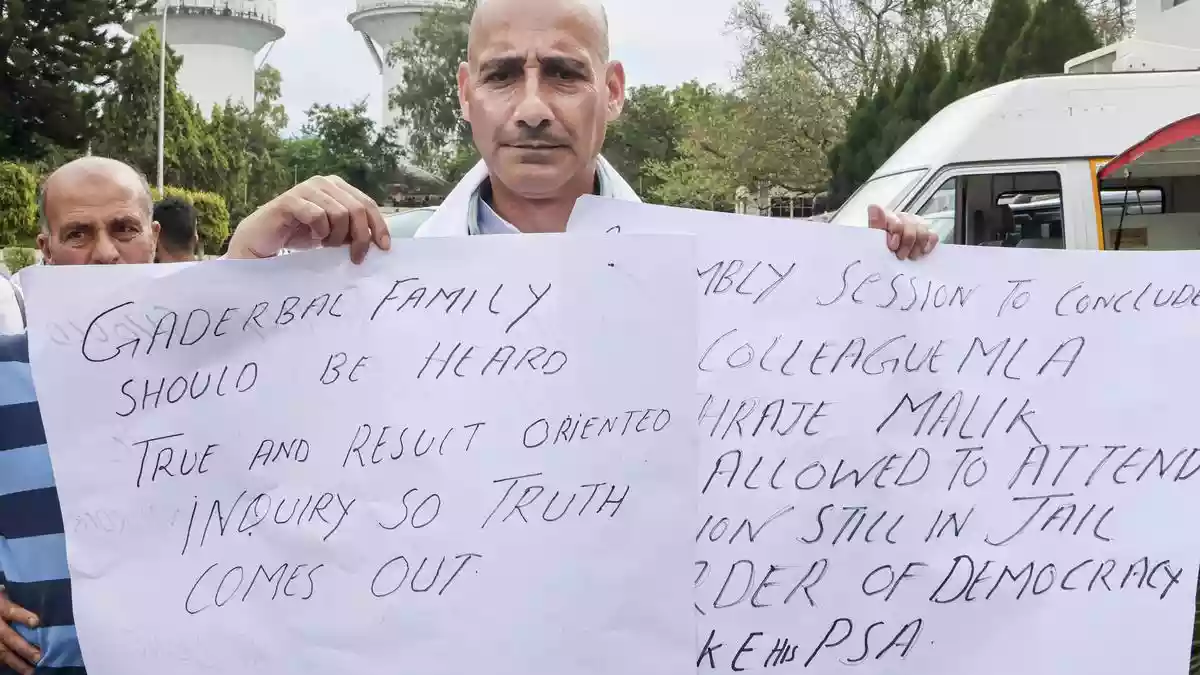 GADERBAL FAMILY
SHOULD BE HEARD
TRUE AND RESULT ORIENTED
INQUIRY SO TRUTH
COMES OUT.
MBLY SESSION TO CONCLUDE
COLLEAGUE MLA
HRAJE MALIK
ALLOWED TO ATTEND
ION STILL IN JAIL
RDER OF DEMOCRACY
KE HIS PSA.